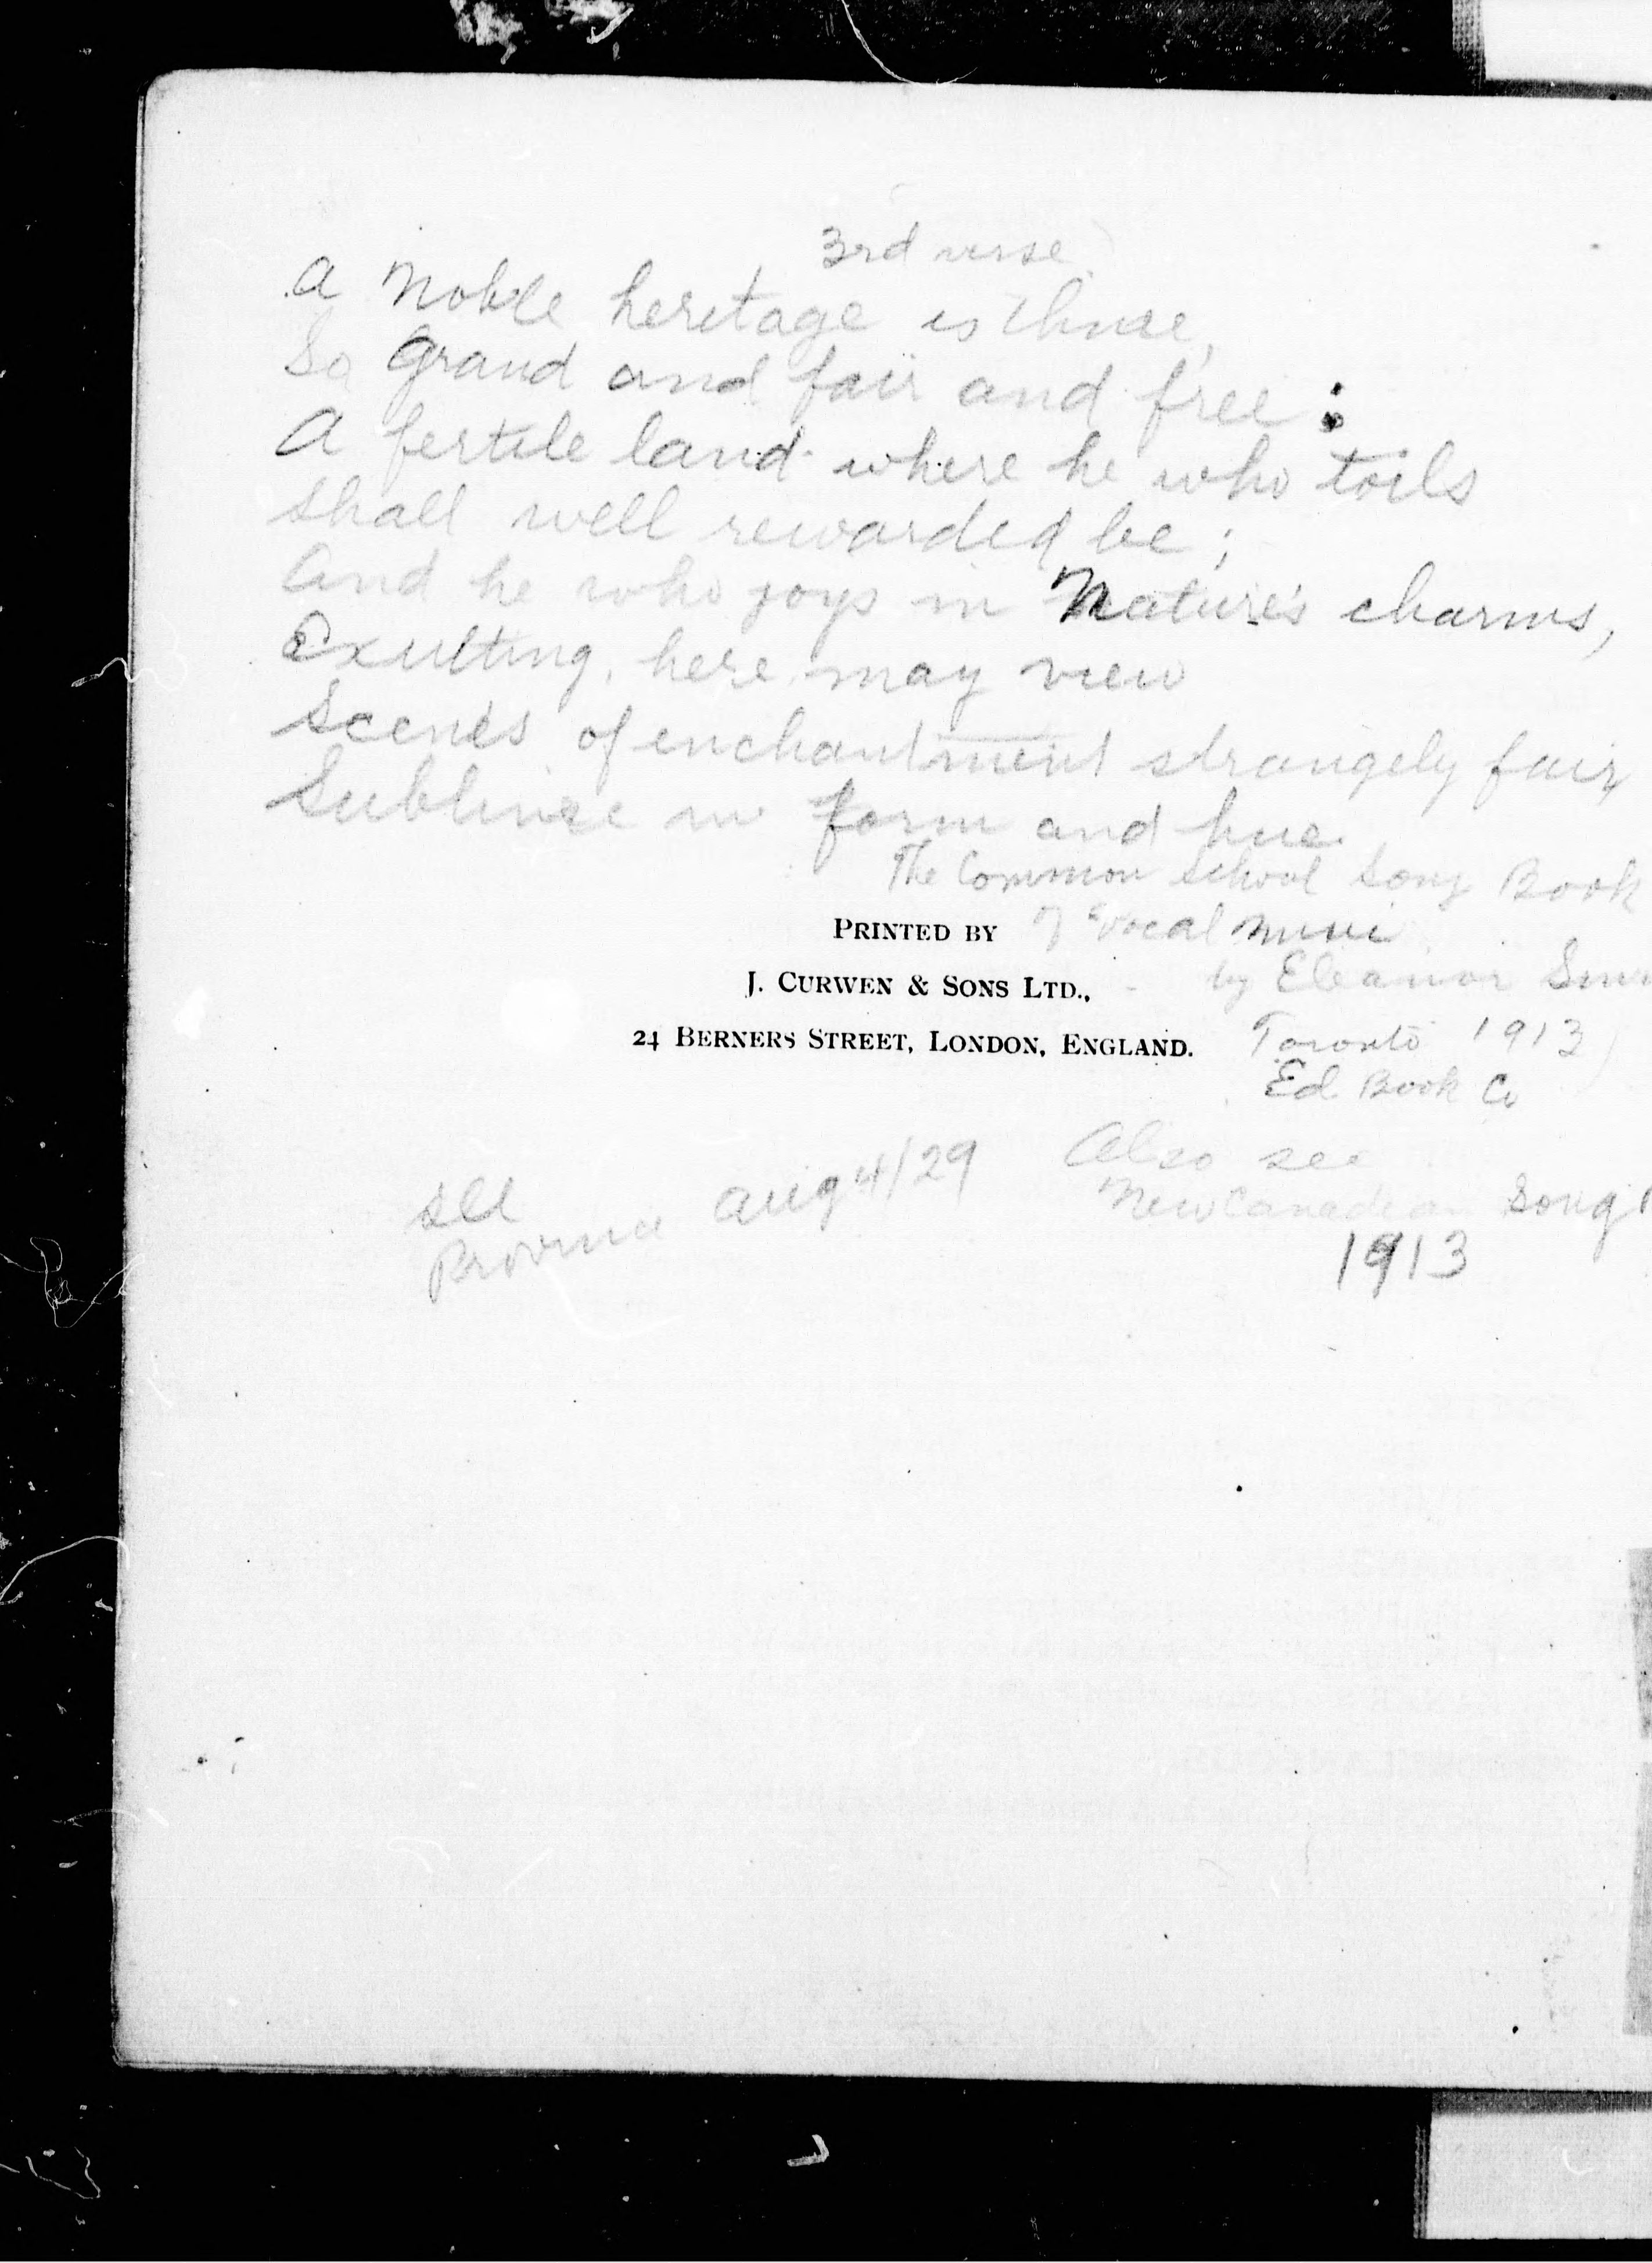 3rd verse
A Noble heritage is thine,
So Grand and fair and free:
A fertile land where he who toils
Shall well rewarded be;
And he who joys in Nature's charms,
Exulting, here may view
Scenes of enchantment strangely fair,
Sublime in form and hue.
The Common School Song Book
of Vocal Music
PRINTED BY
J. CURWEN & SONS LTD.,
by Eleanor
24 BERNERS STREET, LONDON, ENGLAND.
Toronto 1913)
Ed. Book Co
Also see
New Canadian Song
1913
See
Province Aug 4/29